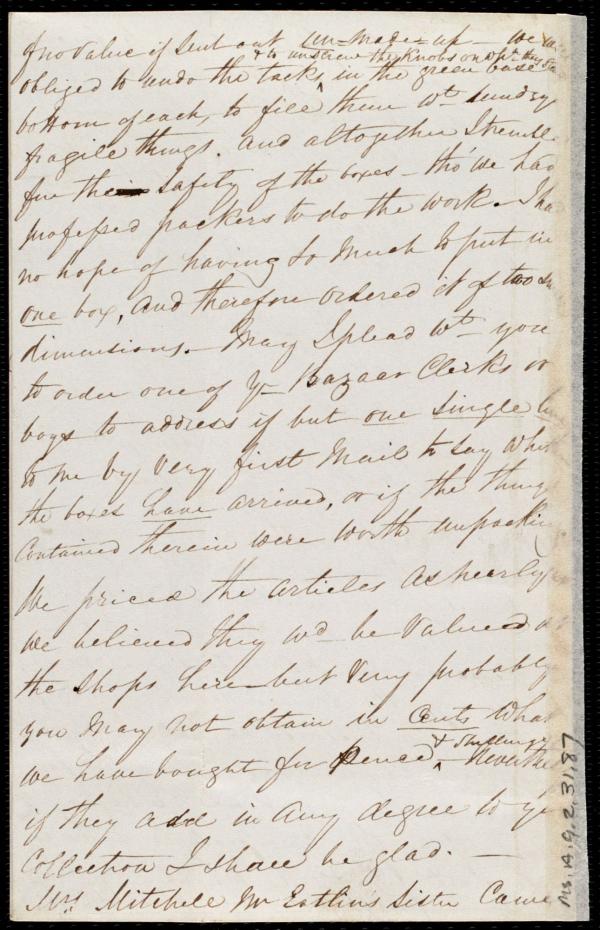 of no value if sent out un-made-up - we
& to unscrew the Knobs on
obliged to undo the tacks ^ in the green baze
bottom of each, to fill them wt sundry
fragile things. And altogether I tremble
for the safety of the boxes - tho' we had
professed packers to do the work. I had
no hope of having so much to put in
one box, and therefore ordered it of two
dimensions. - May I plead wt you
to order one of yr Bazaar Clerks or
boys to address if but one single
to me by very first Mail to say
the boxes have arrived, or if the things
contained therein were worth unpacking
We priced the articles as nearly
we believed they wd be valued
the shops here - but very probably
you may not obtain in Cents what
& shillings
we have bought for pence ^ -
if they add in any degree to yr
Collection I shall be glad. -
Mrs Mitchell Mr Estlin's Sister Came
Ms.A.9.2.31,87